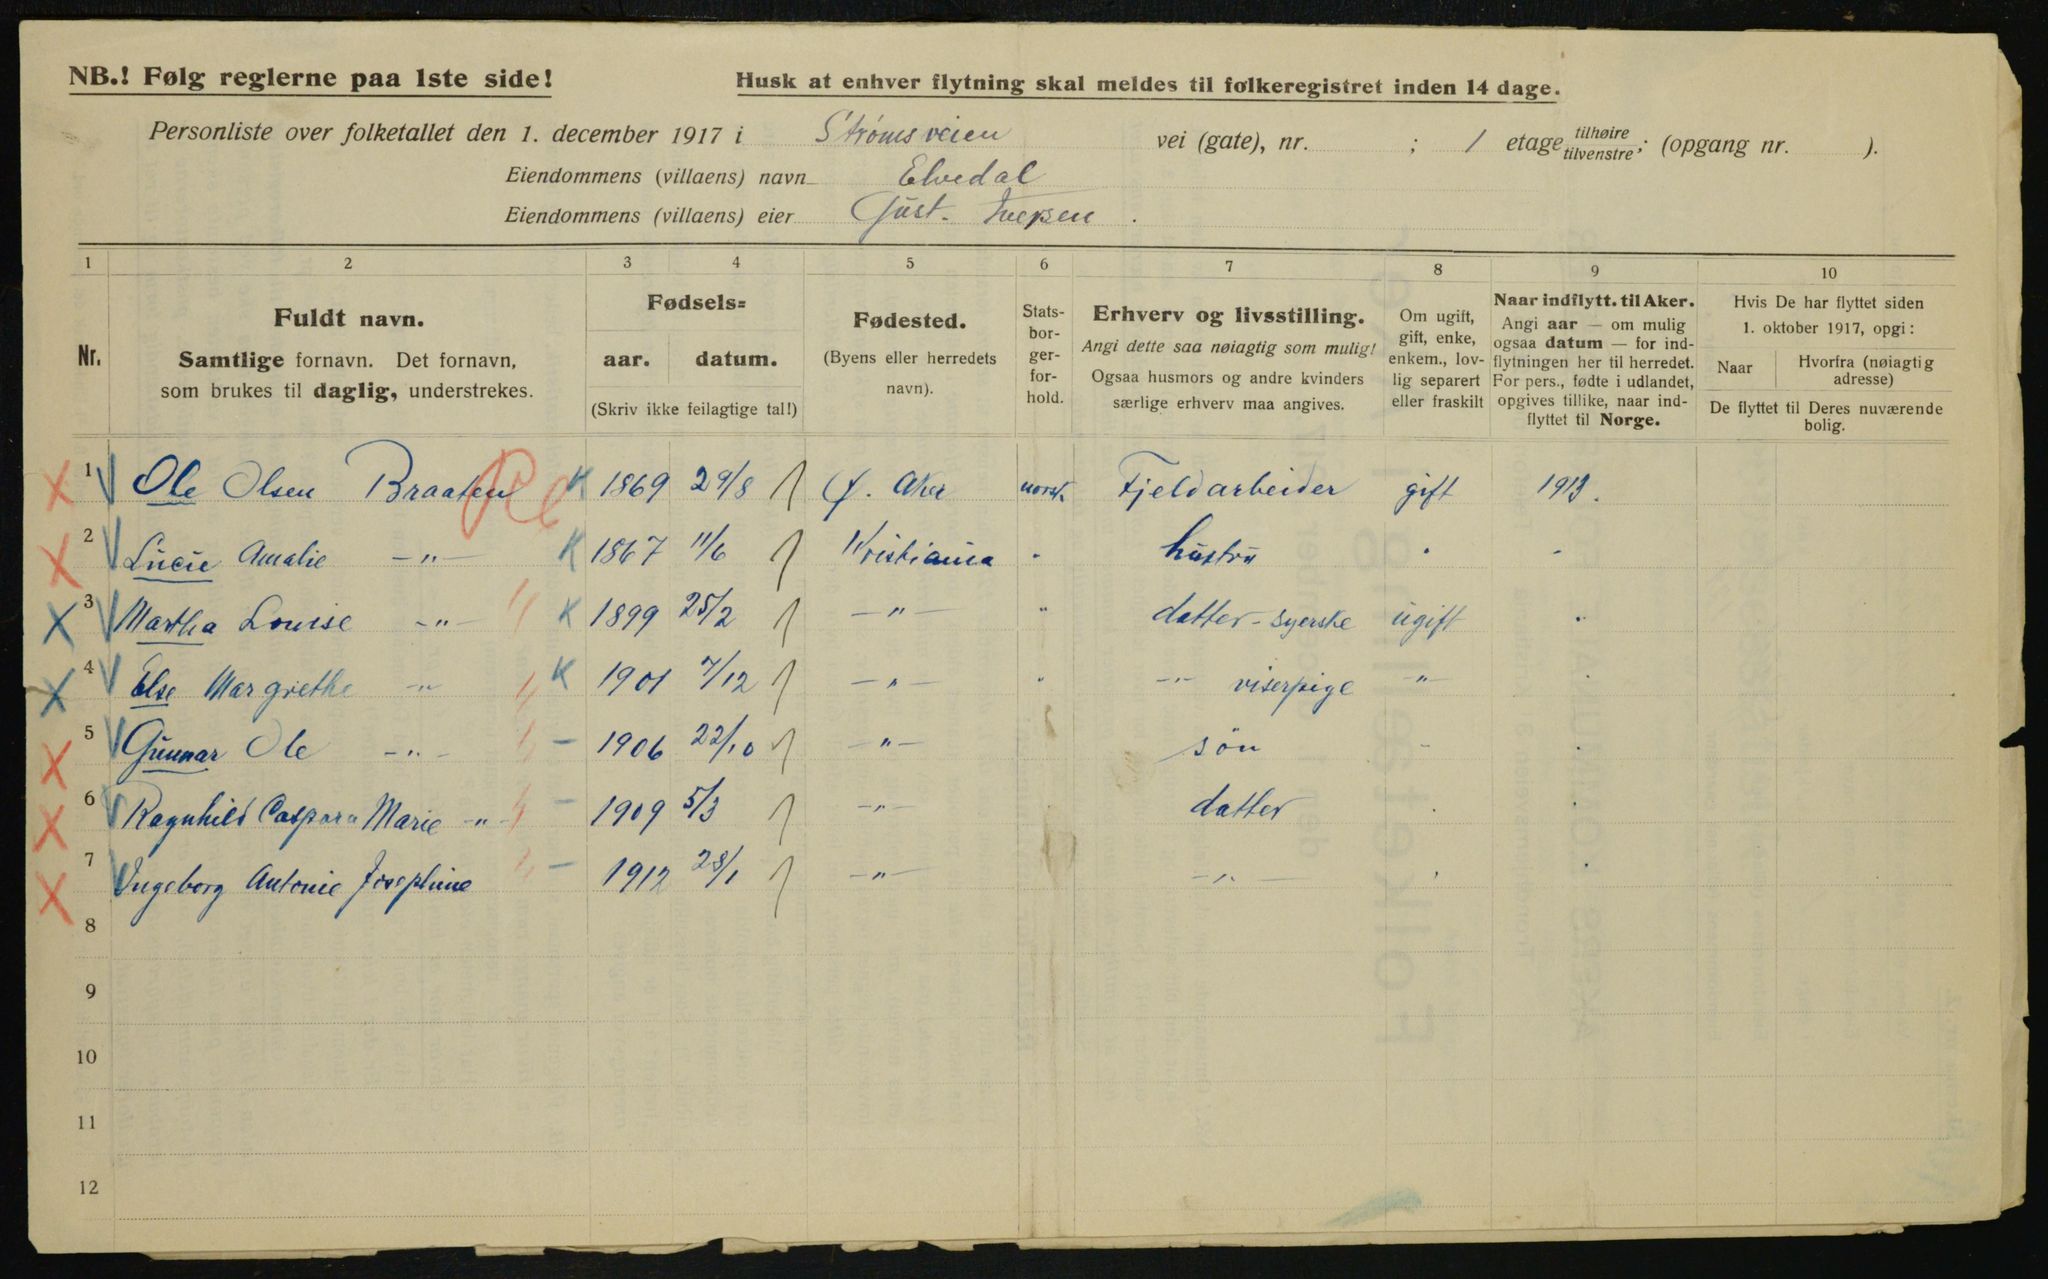 NB.! Følg reglerne paa 1ste side!
Husk at enhver flytning skal meldes til folkeregistret inden 14 dage.
Personliste over folketallet den 1. december 1917 i Strømsveien vei (gate), nr. ; 1 etage tilhøire tilvenstre; (opgang nr. ).
Eiendommens (villaens) navn Elvedal
Eiendommens (villaens) eier Gust. Iversen .
1 2 3 4 5 6 7 8 9 10
Nr.
Fuldt navn.
Samtlige fornavn. Det fornavn,
som brukes til daglig, understrekes.
Fødsels=
aar. datum.
(Skriv ikke feilagtige tal!)
Fødested.
(Byens eller herredets
navn).
Stats-
bor-
ger-
for-
hold.
Erhverv og livsstilling.
Angi dette saa nøiagtig som mulig!
Ogsaa husmors og andre kvinders
særlige erhverv maa angives.
Om ugift,
gift, enke,
enkem., lov-
lig separert
eller fraskilt
Naar indflytt. til Aker.
Angi aar — om mulig
ogsaa datum — for ind-
flytningen her til herredet.
For pers., fødte i udlandet,
opgives tillike, naar ind-
flyttet til Norge.
Hvis De har flyttet siden
1. oktober 1917, opgi:
Naar
Hvorfra (nøiagtig
adresse)
De flyttet til Deres nuværende
bolig.
1 Ole Olsen Braaten K 1869 29/8 Ø. Aker norsk Fjeldarbeider gift 1913.
2 Lucie Amalie —"— K 1867 11/6 Kristiania " hustru " "
3 Martha Louise —"— K 1899 25/2 —"— " datter - syerske ugift "
4 Else Margrethe —"— K 1901 7/12 —"— " —"— viserpige —"— "
5 Gunnar Ole —"— — 1906 22/10 —"— søn " "
6 Ragnhild Caspara Marie —"— — 1909 5/3 —"— datter " "
7 Ingeborg Antonie Josephine — 1912 28/1 —"— —"— " "
8
9
10
11
12